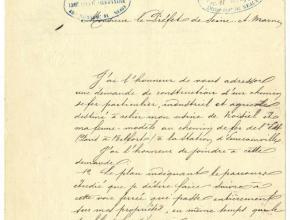 Monsieur le Préfet de Seine et Marne,
J'ai l'honneur de vous adresser
une demande de construction d'un chemin
de fer particulier, industriel et agricole
destiné à relier mon usine de Noisiel et
ma ferme-modèle au chemin de fer de l'Est
à la Station d'Emerainville
J'ai l'honneur de joindre à cette
demande
1º Le plan indiquant le parcours
étudié que je désire faire suivre à
cette voie ferrée qui passe entièrement
sur mes propriétés, en même temps que le